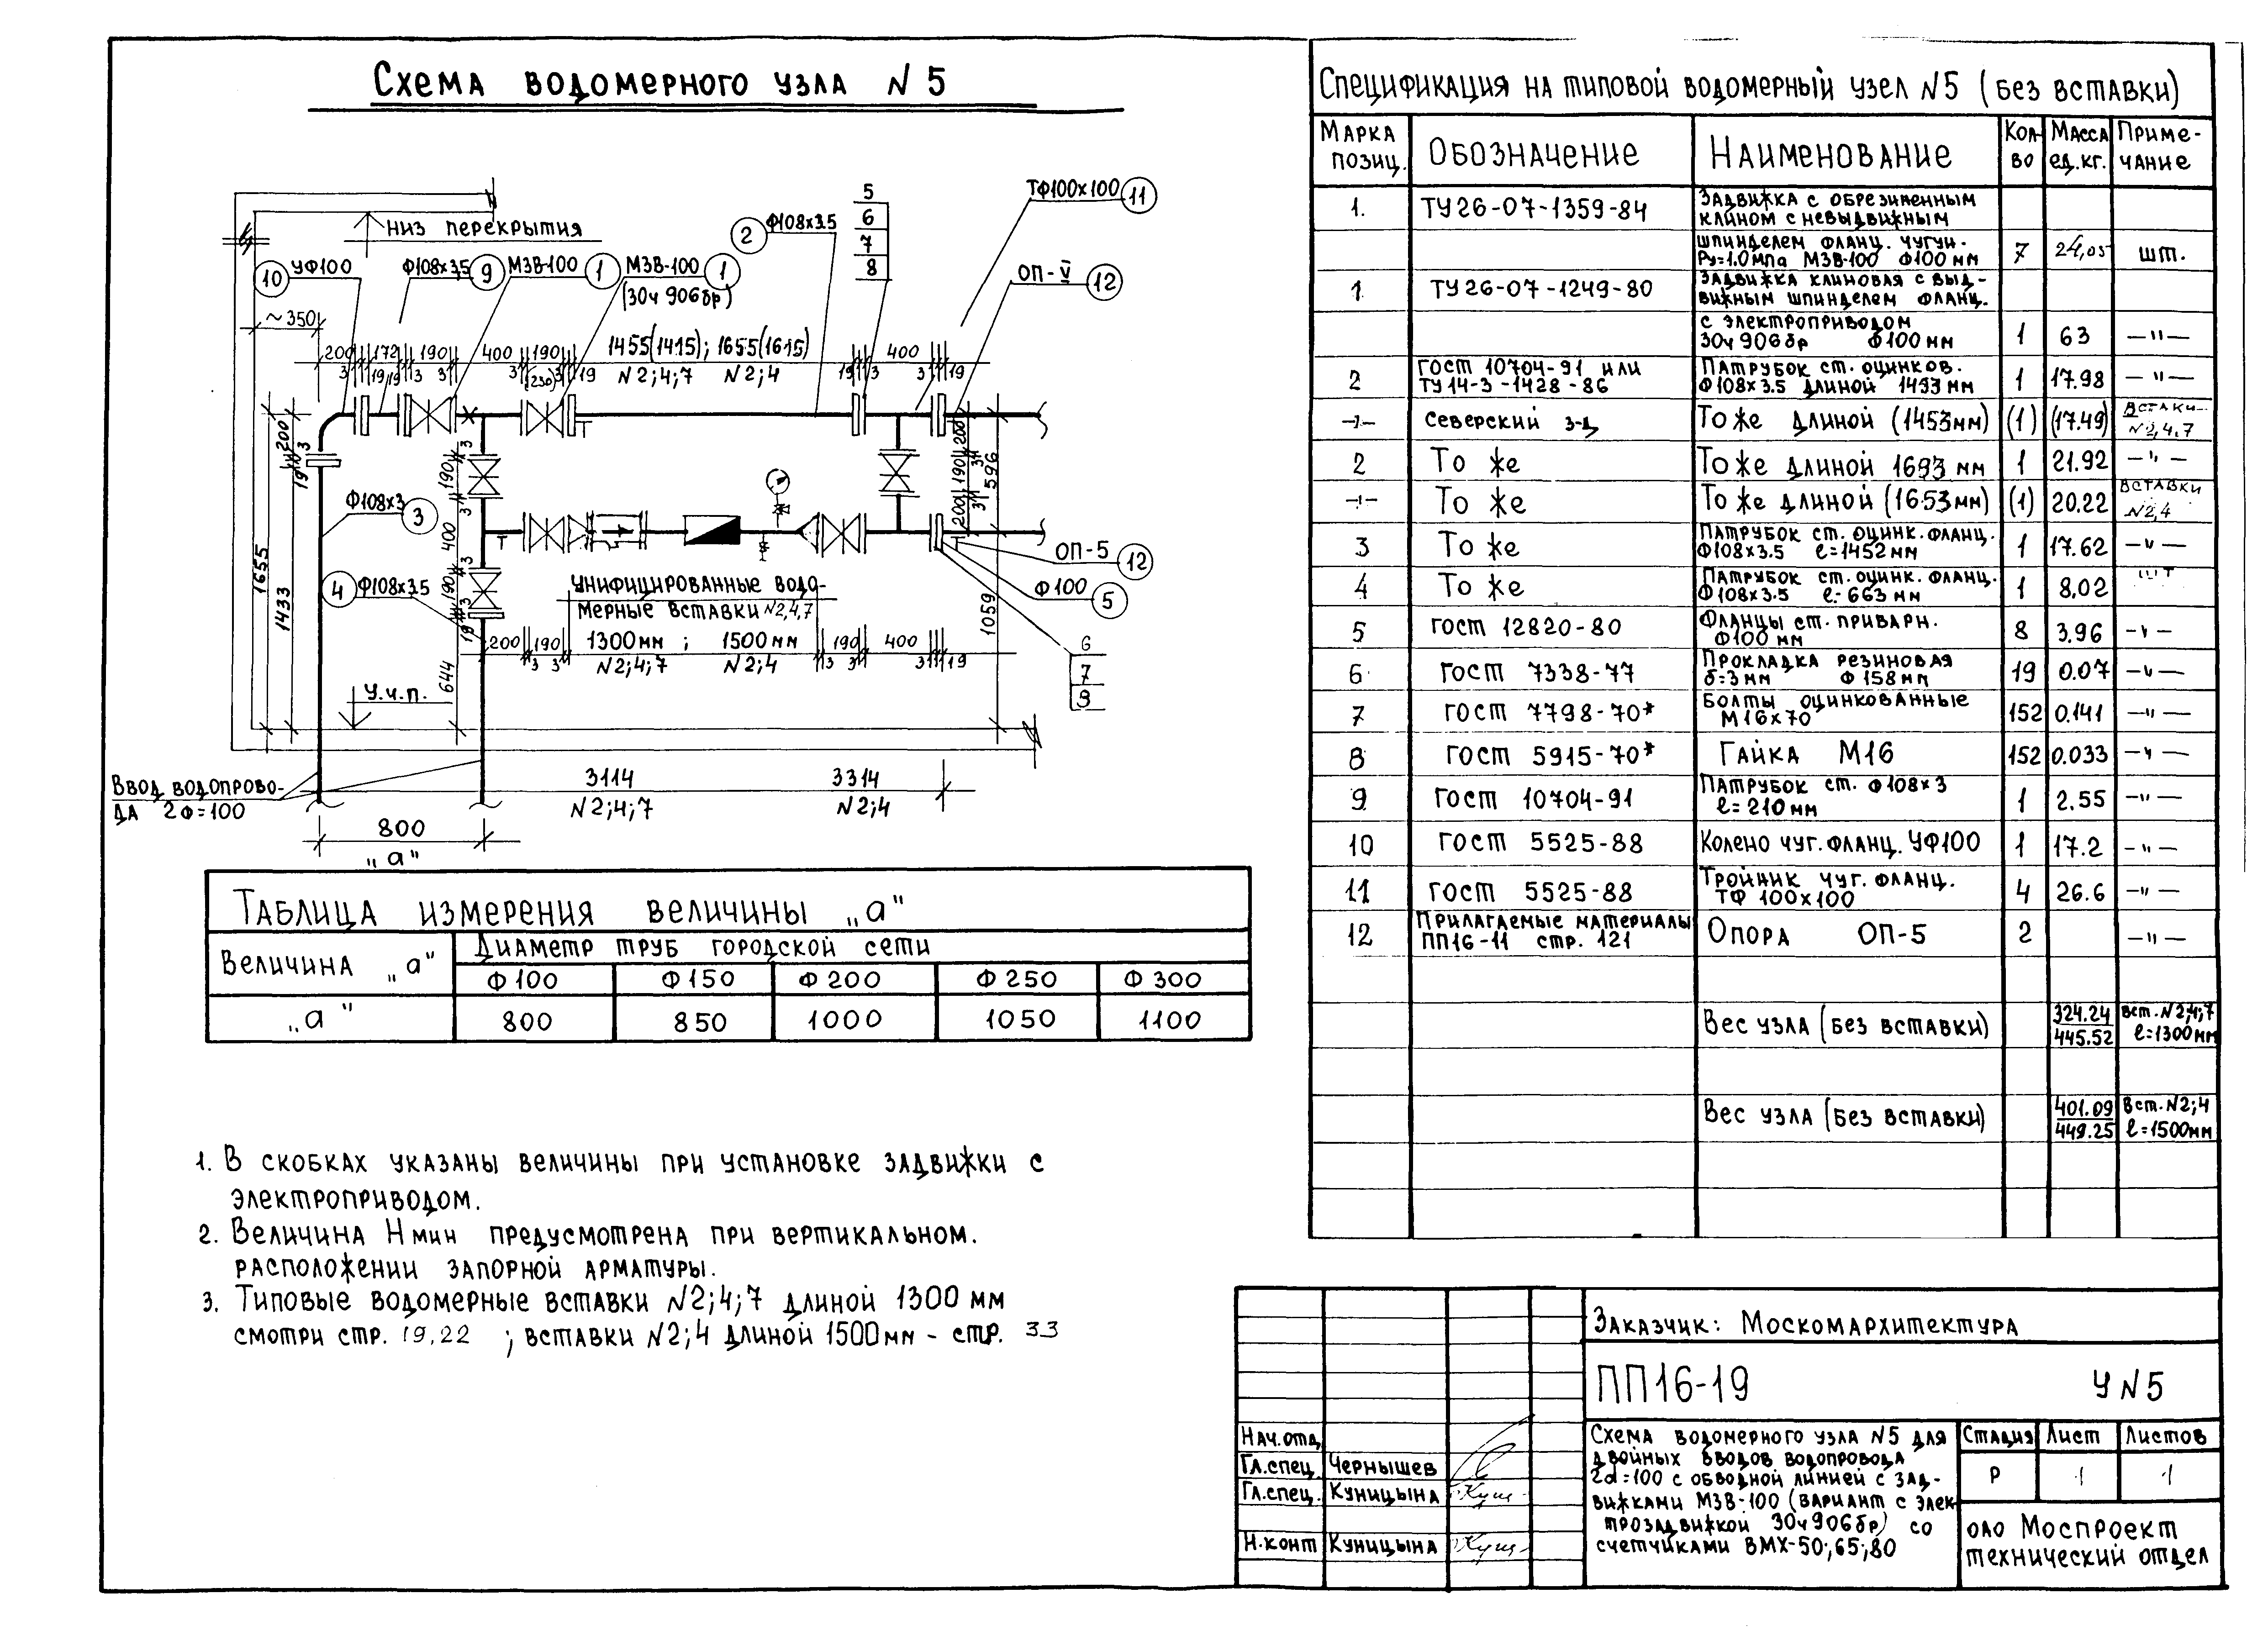 Схема водомерного узла N 5
Низ перекрытия
УФ100
10
Ф108х3.5
9
МЗВ-100
1
МЗВ-100
1
(30ч 906бр)
2
Ф108х3.5
5
6
7
8
ТФ100х100
11
ОП-V
12
~350
200
172
190
400
190
1455(1415); 1655(1615)
400
3
19
19
3
3
3
(230)
3
19
N2;4;7
N2;4
19
3
3
19
200
19
3
1655
1433
Ф108х3
3
4
Ф108х3.5
3
190
3
400
3
190
3
19
644
200
3
190
3
200
596
1059
ОП-5
12
Ф100
5
6
7
Унифицированные водо-
мерные вставки N2,4,7
200
190
1300мм ; 1500мм
190
400
3
3
N2;4;7
N2;4
3
3
3
19
У.ч.п.
Ввод водопрово-
да 2Ф=100
3114
3314
N2;4;7
N2;4
800
„а"
Таблица измерения величины „а"
Величина „а"
Диаметр труб городской сети
Ф100 Ф150 Ф200 Ф250 Ф300
„а" 800 850 1000 1050 1100
1. В скобках указаны величины при установке задвижки с
электроприводом.
2. Величина Нмин предусмотрена при вертикальном.
расположении запорной арматуры.
3. Типовые водомерные вставки N2;4;7 длиной 1300 мм
смотри стр. 19,22 ; вставки N2;4 длиной 1500мм - стр. 33
Спецификация на типовой водомерный узел N5 (без вставки)
Марка позиц. Обозначение Наименование Кол-во Масса ед.кг. Приме-чание
1. ТУ26-07-1359-84 Задвижка с обрезиненным
клином с невыдвижным
шпинделем фланц. чугун.
Ру=1.0мпа МЗВ-100 Ф100мм 7 24,05 шт.
1 ТУ26-07-1249-80 Задвижка клиновая с выд-
вижным шпинделем фланц.
с электроприводом
30ч906бр Ф100мм 1 63 —"—
2 ГОСТ 10704-91 или
ТУ14-3-1428-86 Патрубок ст. оцинков.
Ф108х3.5 длиной 1493мм 1 17.98 —"—
—"— Северский з-д То же длиной (1453мм) (1) (17.49) Вставки
N2,4.7
2 То же То же длиной 1693мм 1 21.92 —"—
—"— То же То же длиной (1653мм) (1) 20.22 Вставки
N2,4
3 То же Патрубок ст. оцинк. фланц.
Ф108х3.5 ℓ=1452мм 1 17.62 —"—
4 То же Патрубок ст. оцинк. фланц.
Ф108х3.5 ℓ-663мм 1 8.02 шт
5 ГОСТ 12820-80 Фланцы ст. приварн.
Ф100мм 8 3.96 —"—
6 ГОСТ 7338-77 Прокладка резиновая
δ=3мм Ф158мм 19 0.07 —"—
7 ГОСТ 7798-70* Болты оцинкованные
М16х70 152 0.141 —"—
8 ГОСТ 5915-70* Гайка М16 152 0.033 —"—
9 ГОСТ 10704-91 Патрубок ст. Ф108х3
ℓ=210мм 1 2.55 —"—
10 ГОСТ 5525-88 Колено чуг. фланц. УФ100 1 17.2 —"—
11 ГОСТ 5525-88 Тройник чуг. фланц.
ТФ 100х100 4 26.6 —"—
12 Прилагаемые материалы
ПП16-11 стр. 121 Опора ОП-5 2 —"—
Вес узла (без вставки) 324.24
445.52 Вст. N2;4;7
ℓ=1300мм
Вес узла (без вставки) 401.09
449.25 Вст. N2;4
ℓ=1500мм
Заказчик: Москомархитектура
ПП16-19 УN5
Нач.отд.
Гл.спец. Чернышев
Гл.спец. Куницына
Н.конт Куницына
Схема водомерного узла N5 для
двойных вводов водопровода
2d=100 с обводной линией с зад-
вижками МЗВ-100 (вариант с элек
трозадвижкой 30ч906бр) со
счетчиками ВМХ-50;,65;,80
Стадия Лист Листов
Р 1 1
ОАО Моспроект
технический отдел